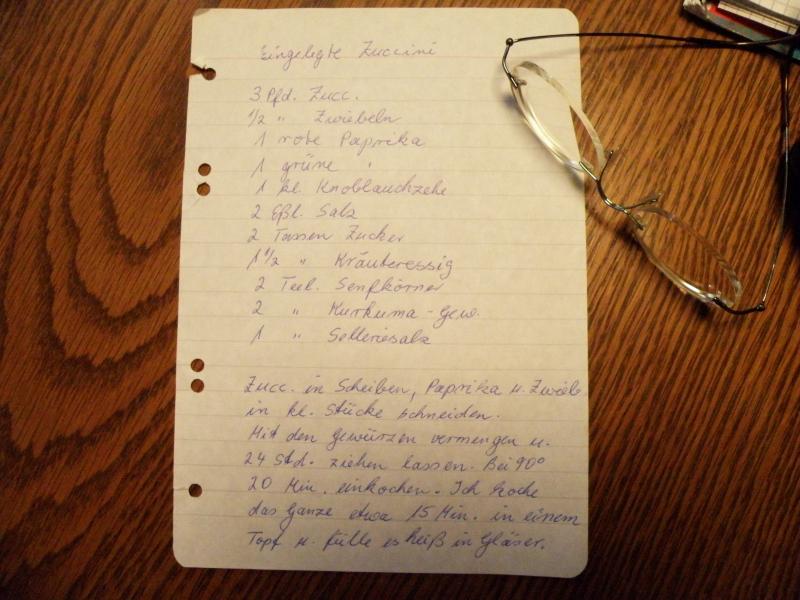 Eingelegte Zuccini
3 Pfd. Zucc.
1/2 " Zwiebeln
1 rote Paprika
1 grüne "
1 kl. Knoblauchzehe
2 Eßl. Salz
2 Tassen Zucker
1 1/2 " Kräuteressig
2 Teel. Senfkörner
2 " Kurkuma-Gew.
1 " Selleriesalz
Zucc. in Scheiben, Paprika u. Zwieb
in kl. Stücke schneiden.
Mit den Gewürzen vermengen u.
24 Std. ziehen lassen. Bei 90°
20 Min. einkochen. Ich koche
das Ganze etwa 15 Min. in einem
Topf u. fülle es heiß in Gläser.